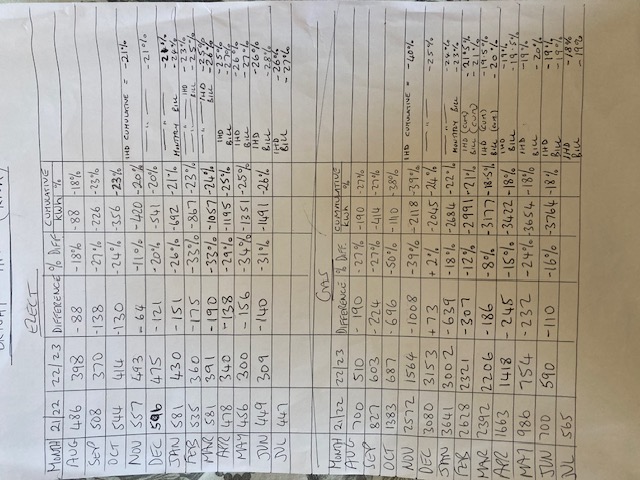 ELECT
MONTH 21/22 22/23 DIFFERENCE % DIFF CUMULATIVE KWh %
AUG 486 398 -88 -18% -88 -18%
SEP 508 370 -138 -27% -226 -23%
OCT 544 414 -130 -24% -356 -23%
NOV 557 493 -64 -11% -420 -20% IHD CUMULATIVE = -21%
DEC 596 475 -121 -20% -541 -20% " — " — -21%
JAN 581 430 -151 -26% -692 -21% MONTHLY BILL -24%
FEB 535 360 -175 -33% -867 -23% IHD -23% BILL -25%
MAR 581 391 -190 -33% -1057 -24% IHD BILL -26%
APR 478 340 -138 -29% -1195 -25% IHD -25% BILL -27%
MAY 456 300 -156 -34% -1351 -25% IHD -26% BILL -27%
JUN 449 309 -140 -31% -1491 -26% IHD -26% BILL -28%
JUL 447 IHD -26% BILL -27%
GAS
MONTH 21/22 22/23 DIFFERENCE % DIFF CUMULATIVE KWh %
AUG 700 510 -190 -27% -190 -27%
SEP 827 603 -224 -27% -414 -27%
OCT 1383 687 -696 -50% -1110 -38%
NOV 2572 1564 -1008 -39% -2118 -39% IHD CUMULATIVE = -40%
DEC 3080 3153 +73 +2% -2045 -24% " — " — -25%
JAN 3641 3002 -639 -18% -2684 -22% MONTHLY BILL -23%
FEB 2628 2321 -307 -12% -2991 -21% IHD (CUM) -21.5% BILL (CUM) -21%
MAR 2392 2206 -186 -8% -3177 -18.5% IHD (CUM) -19.5% BILL (CUM) -20%
APR 1663 1418 -245 -15% -3422 -18% IHD -19% BILL -19.5%
MAY 986 754 -232 -24% -3654 -18% IHD -19% BILL -20%
JUN 700 590 -110 -16% -3764 -18% IHD -19% BILL -19%
JUL 565 IHD -18% BILL -19%